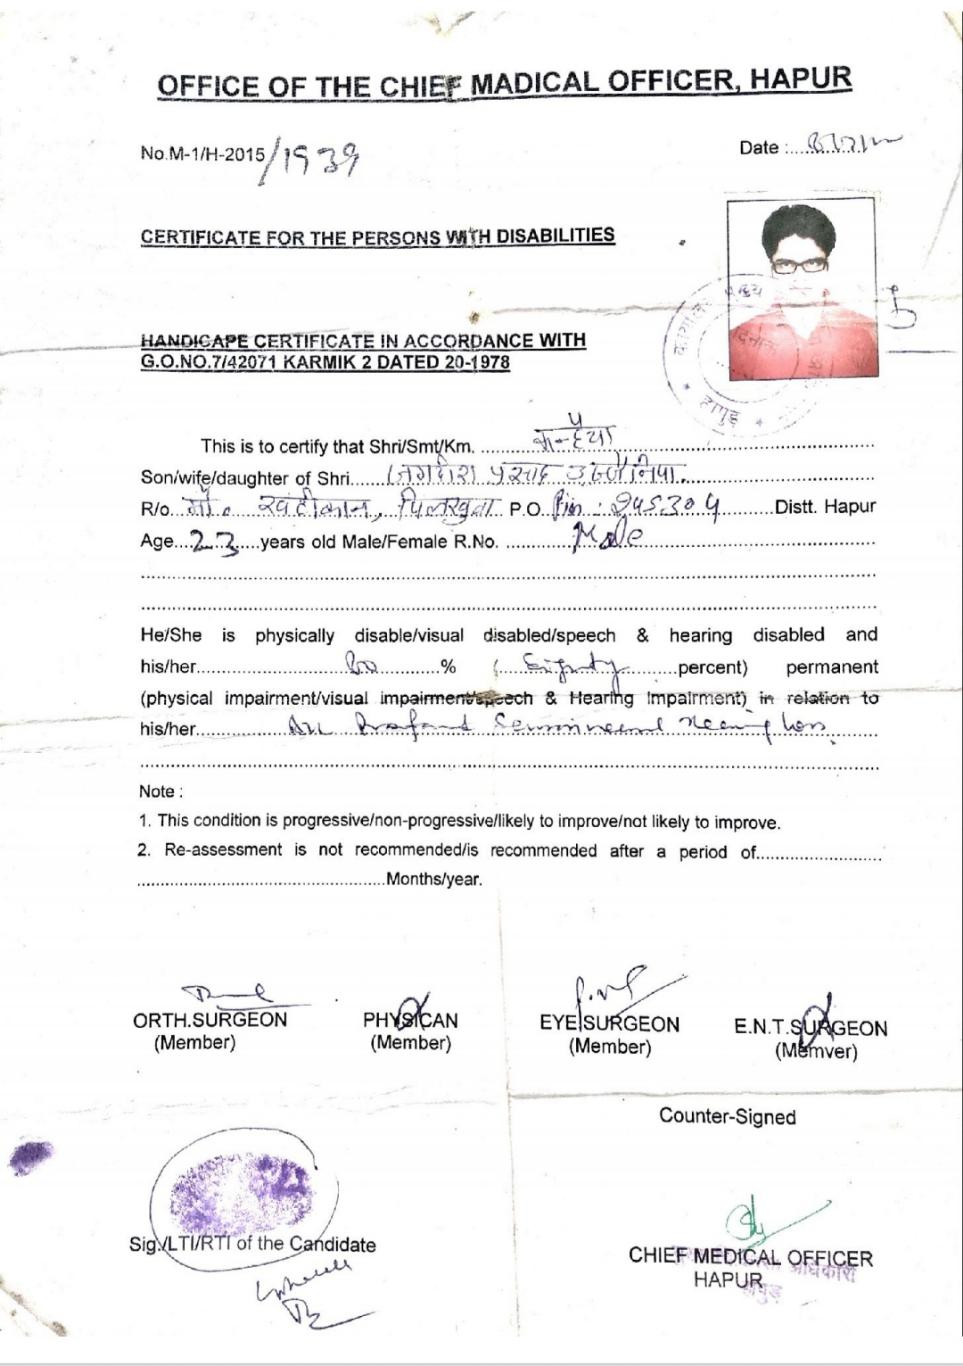 OFFICE OF THE CHIEF MADICAL OFFICER, HAPUR
No.M-1/H-2015/1939
Date :
CERTIFICATE FOR THE PERSONS WITH DISABILITIES
HANDICAPE CERTIFICATE IN ACCORDANCE WITH
G.O.NO.7/42071 KARMIK 2 DATED 20-1978
हापुड़
This is to certify that Shri/Smt/Km.
Son/wife/daughter of Shri.... जगदीश प्रसाद
R/o. मौ० खटीकान, पिलखुवा P.O. Pin : 245304 Distt. Hapur
Age...23....years old Male/Female R.No. Male
He/She is physically disable/visual disabled/speech & hearing disabled and
his/her..........% (Eighty percent) permanent
(physical impairment/visual impairment/speech & Hearing Impairment) in relation to
his/her Hearing Loss
Note :
1. This condition is progressive/non-progressive/likely to improve/not likely to improve.
2. Re-assessment is not recommended/is recommended after a period of..........
..........Months/year.
ORTH.SURGEON PHYSICAN EYE SURGEON E.N.T.SURGEON
(Member) (Member) (Member) (Memver)
Counter-Signed
Sig./LTI/RTI of the Candidate
CHIEF MEDICAL OFFICER
अधिकारी
HAPUR
हापुड़